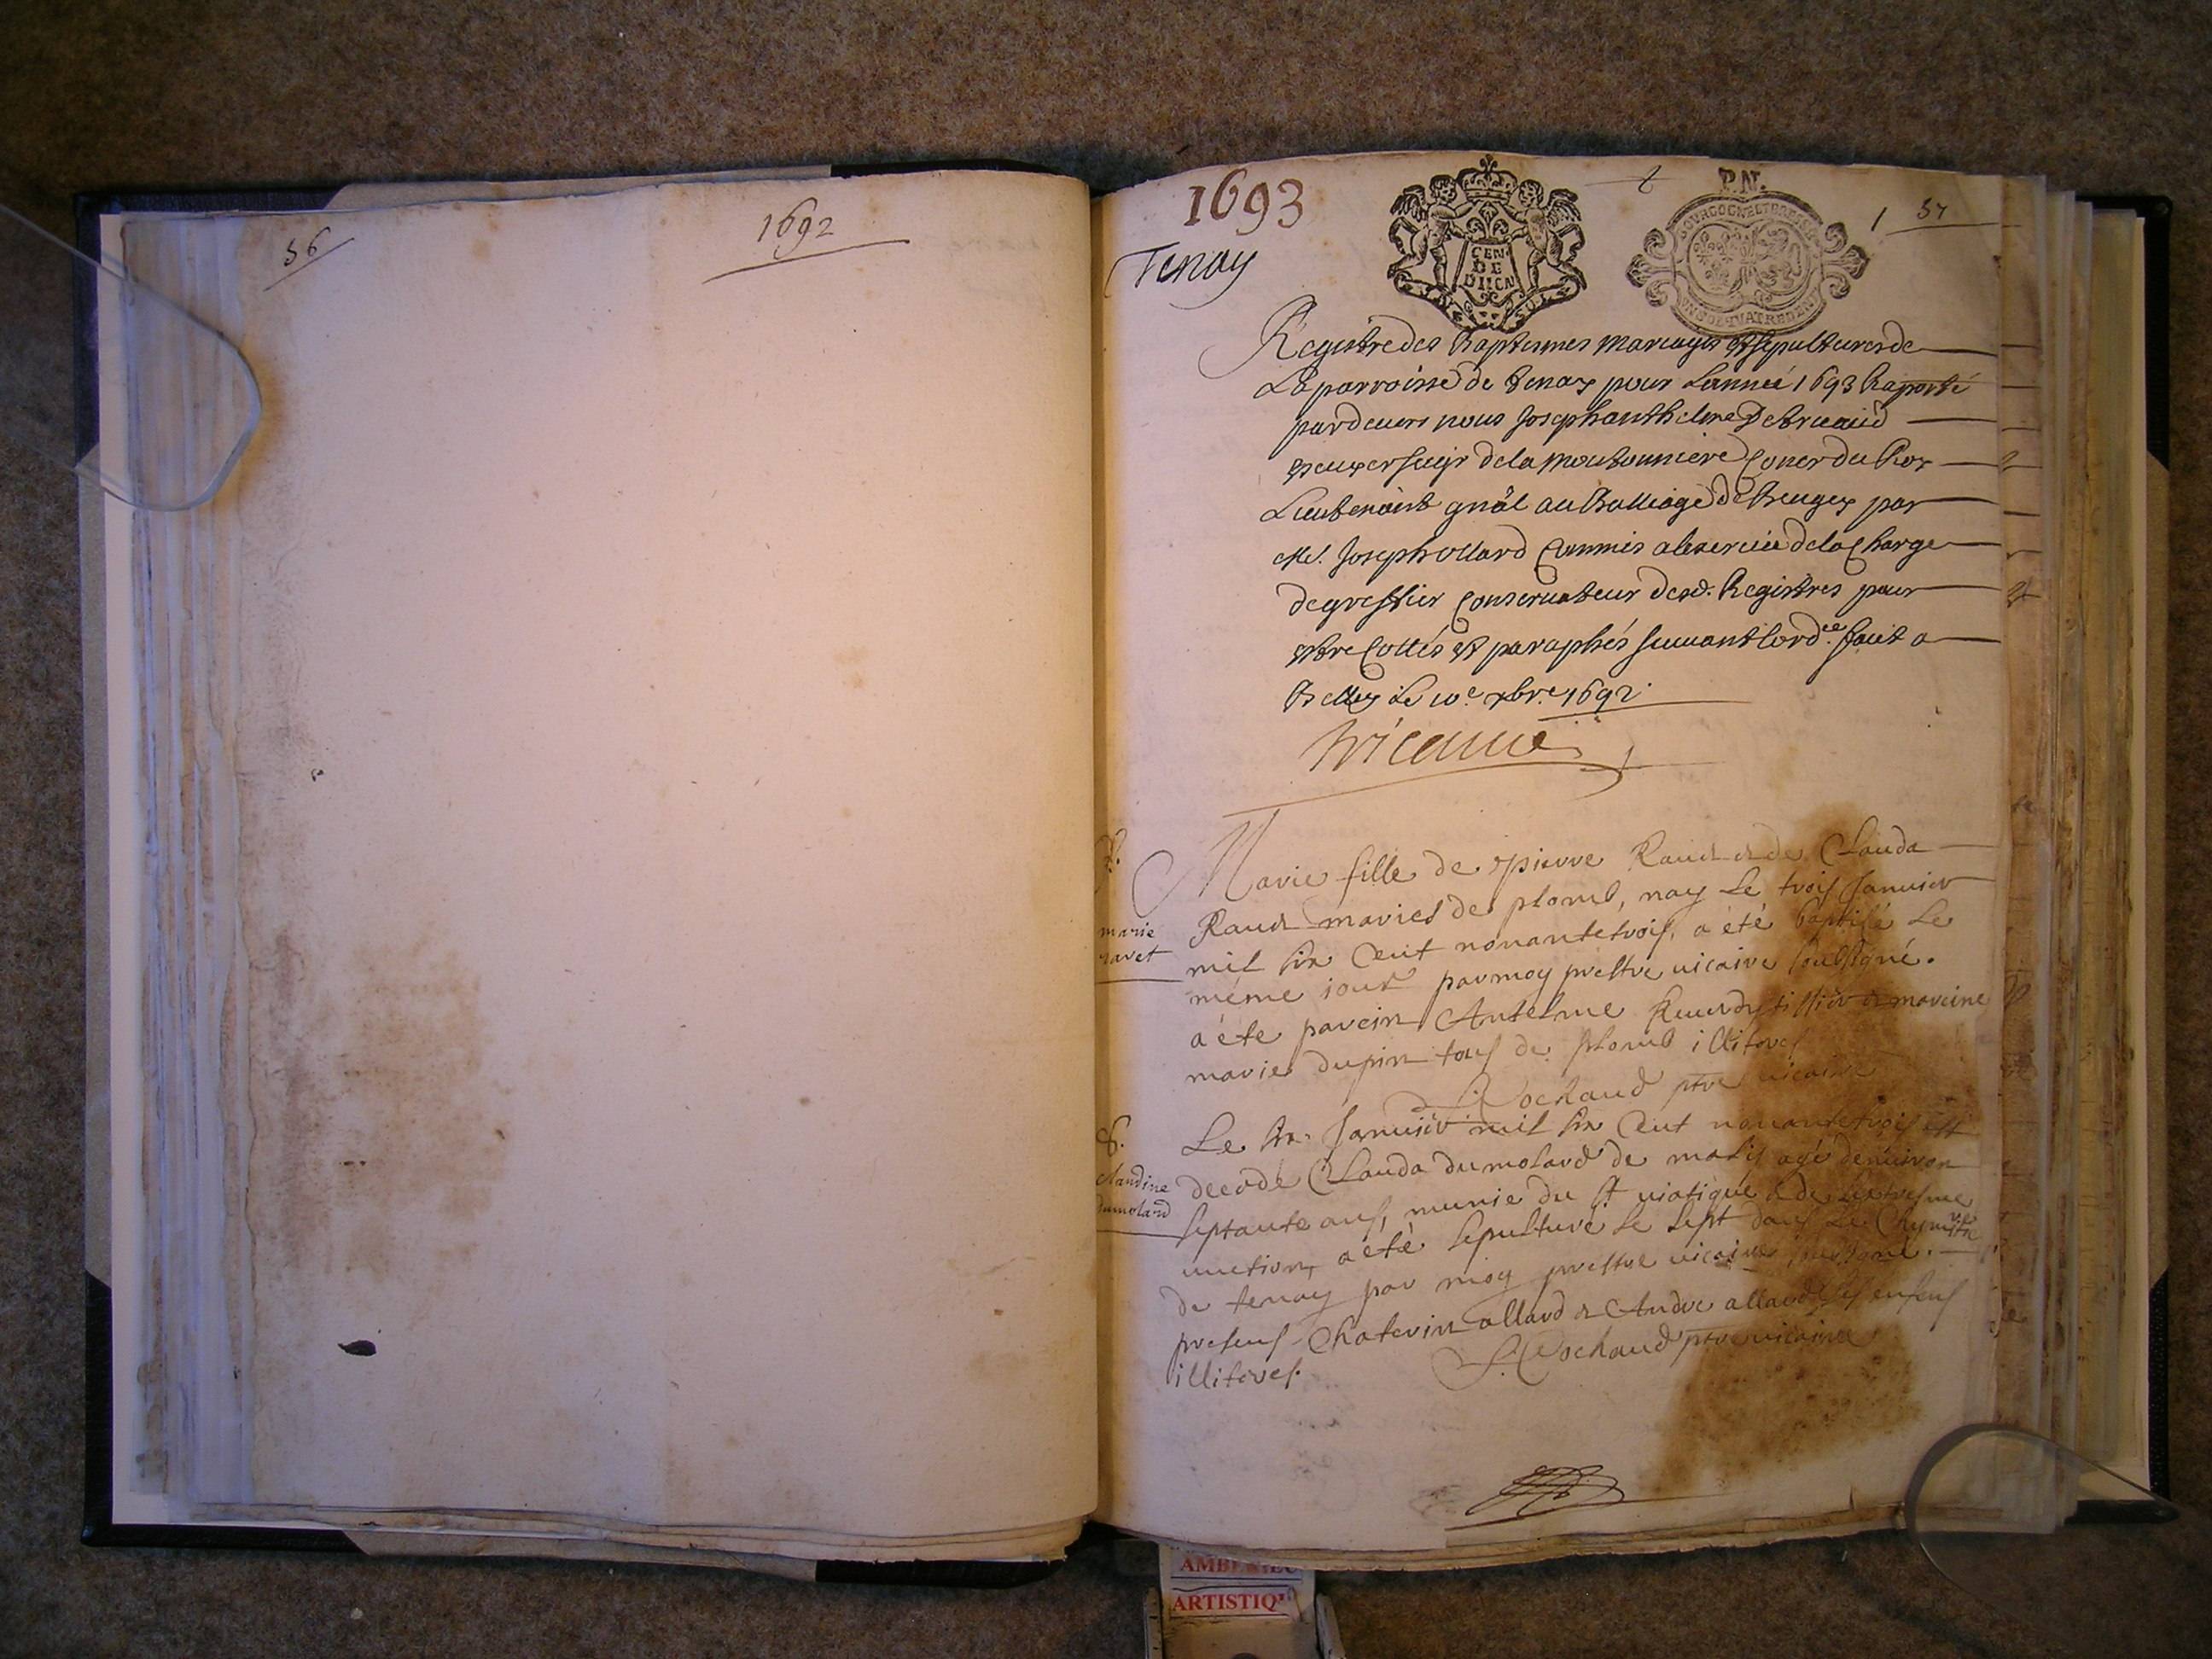 56
1692
1693
Tenay
GEN
DE
DIION
P.N.
BOVRGOGNE ET BRESSE
VN SOL QVATRE DEN
1 57
Registre des baptesmes mariages et sepultures de
La parroisse de tenay pour Lannéé 1693 Raporté
pardevers nous Joseph anthelme De
escuyer seigr de la moutonniere Conser du Roy
Lieutenant gnâl au Balliage de Beugey par
Me. Joseph ollard Commis alexercice de la Charge
de greffier Conservateur desd. Registres pour
estre Cottés et paraphés suivant lordce fait a
Belley Le 10e xbre 1692
B.
marie
ravet
Marie fille de pierre Ravet et de Clauda
Ravet mariés de plomb, nay Le trois Janvier
mil six Cent nonantetrois, a été baptisé Le
méme iour par moy prestre vicaire soubsigné.
a éte parein Antelme et mareine
marie dupin tous de plomb illiteres
Rochaud ptre vicaire
S.
claudine
dumolard
Le six Janvier mil six Cent nonantetrois est
decedé Clauda dumolard de malix agé denviron
septante ans, munie du st viatique & de Lextresme
unction, a été sepulturé Le sept dans Le Chymitre
de tenay par moy prestre vicaire soubsigné.
presens Chaterin allard & Andre allard ses enfens
illiteres. Rochaud ptre vicaire
AMBERIEU
ARTISTIQU